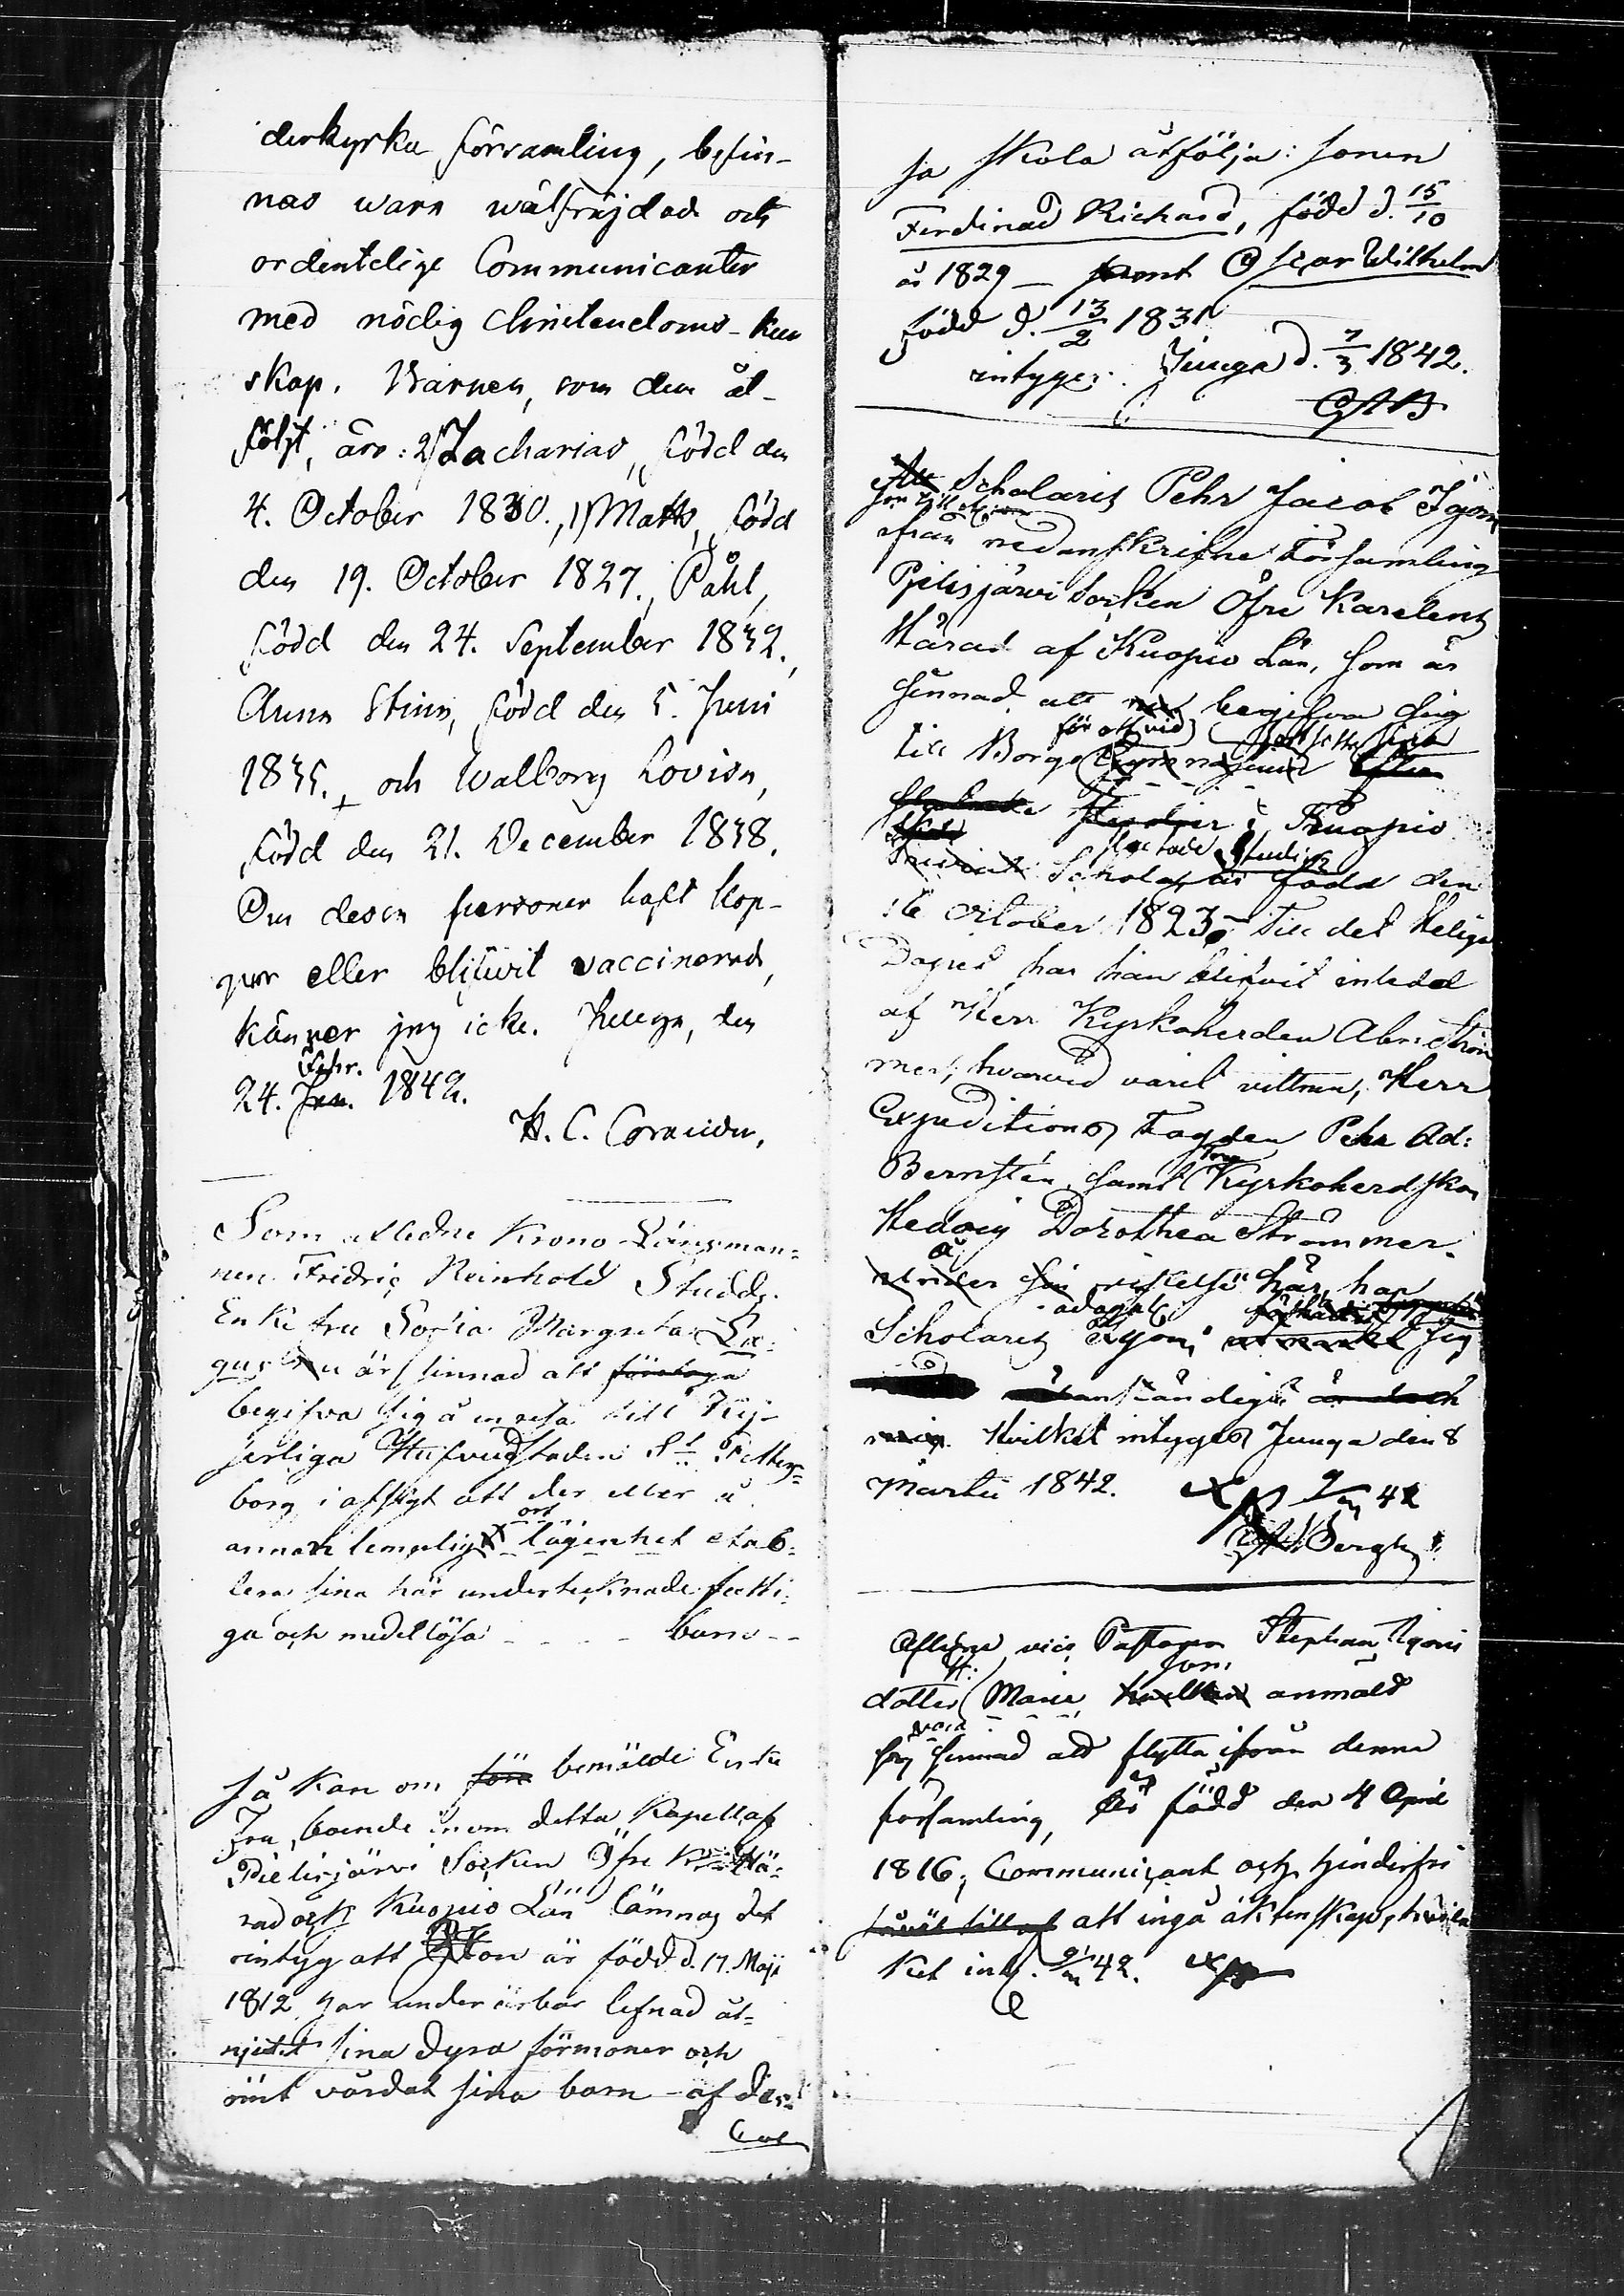 derkyrka församling, befin-
nas wara wälfräjdade och
ordentelige Communicanter
med nödig christendoms-kun
skap. Barnen, som dem åt-
följt, äro: 2) Zacharias, född den
4. October 1830., 1) Matts, född
den 19. October 1827., Påhl,
född den 24. September 1832.,
Anna Stina, född den 5. Juni
1835., och Walborg Lovisa,
född den 21. December 1838.
Om dessa personer haft kop-
por eller blifwit vaccinerade,
känner jag icke. den
Febr.
24. Jan. 1842.
H. C.
Som afledne Krono Länsman-
nen Fridric Reinhold
Enke fru Sofia Margreta
är sinnad att företaga
begifva sig å en resa till Kej-
serliga Hufvudstaden St. Petters-
borg i afsigt att der eller å
ort
annan lempelig lägenhet etab-
lera sina här undertecknade fatti-
ga och medellösa - - - - barn - -
så kan om före bemälde Enke
Fru, boende inom detta Kapell af
Pielisjärvi Socken Öfre Hä-
rad och Kuopio Län lämnas det
intyg att Hon är född d. 17. Maji
1812, har under ärbar lefnad åt-
njutit sina dyra förmoner och
ömt vårdat sina barn - af
sa skola åtfölja: sonen
Ferdinad Richard, född d. 15/10
år 1829 - samt Oscar Wilhelm
född d. 13/2 1831
intygar. Juuga d. 7/3 1842.
Scholaris Pehr Jacob
från nedanskrifne Församling
Pielisjärvi Socken Öfre Karelens
Härad af Kuopio Län, som är
sinnad att begifva sig
för att vid fortsätta sina
till Borgo Gymnasium
Studier i Kuopio
Studier
Trivial Schola är född den
16 October 1823 - Till det Helige
Dopet har han blifvit inledd
af Herr Kyrkoherden Abr: Ström
mer, hvarvid varit vittnen, Herr
Expeditions Fogden Pehr Ad:
Bernsten, samt Kyrkoherdskan
Hedvig Dorothea Strömmer.
vistelse här, har
ådaga
Scholaris sig
anständigt
Hvilket intygas Juuga den 8
Martii 1842. Exp 9/m 42
Bergh
Aflidne vice Pastoren Stephan
dotter Maria anmäld
vara
sig sinnad att flytta ifrån denna
församling, är född den 4 April
1816, Communicant och hinderfri
såväl till att ingå äktenskap, hvil
ket int. 9/m 42. Exp